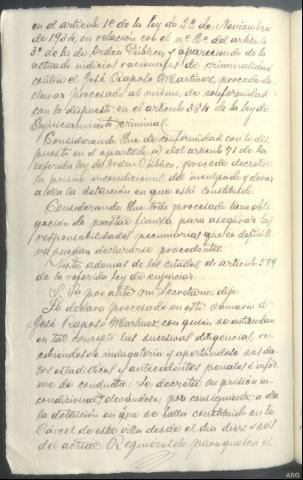 en el artículo 1º de la ley de 23 de Noviembre
de 1934, en relación con el nº 2º del artículo
3º de la de Orden Público, y apareciendo de lo
actuado indicios racionales de criminalidad
contra el José Rapolo Martinez, procede de-
clarar procesado al mismo de conformidad
con lo dispuesto en el artículo 384 de la ley de
Enjuiciamiento criminal.
Considerando: Que de conformidad con lo dis-
puesto en el apartado a) del artículo 71 de la
referida ley del Orden Público, procede decretar
la prisión incondicional del inculpado y elevar
a ella la detención en que está constituido.
Considerando: Que todo procesado tiene obli-
gación de prestar fianza para asegurar las
responsabilidades pecuniarias que en definiti-
va puedan declararse procedentes.
Vistos además de los citados el artículo 589
de la referida ley de enjuiciar.
S. Sª por ante mí Secretario, dijo:
Se declara procesado en este sumario a
José Rapolo Martinez con quién se entiendan
en tal concepto las sucesivas diligencias, re-
cibiéndole indagatoria y aportándole sus da-
tos estadísticos y antecedentes penales é infor-
me de conducta. Se decreta su prisión in-
condicional, elevándose, por consiguiente, a ella
la detención en que se halla constituido en la
Cárcel de esta villa desde el día diez y seis
del actual. Requiérasele para que en el
ARG